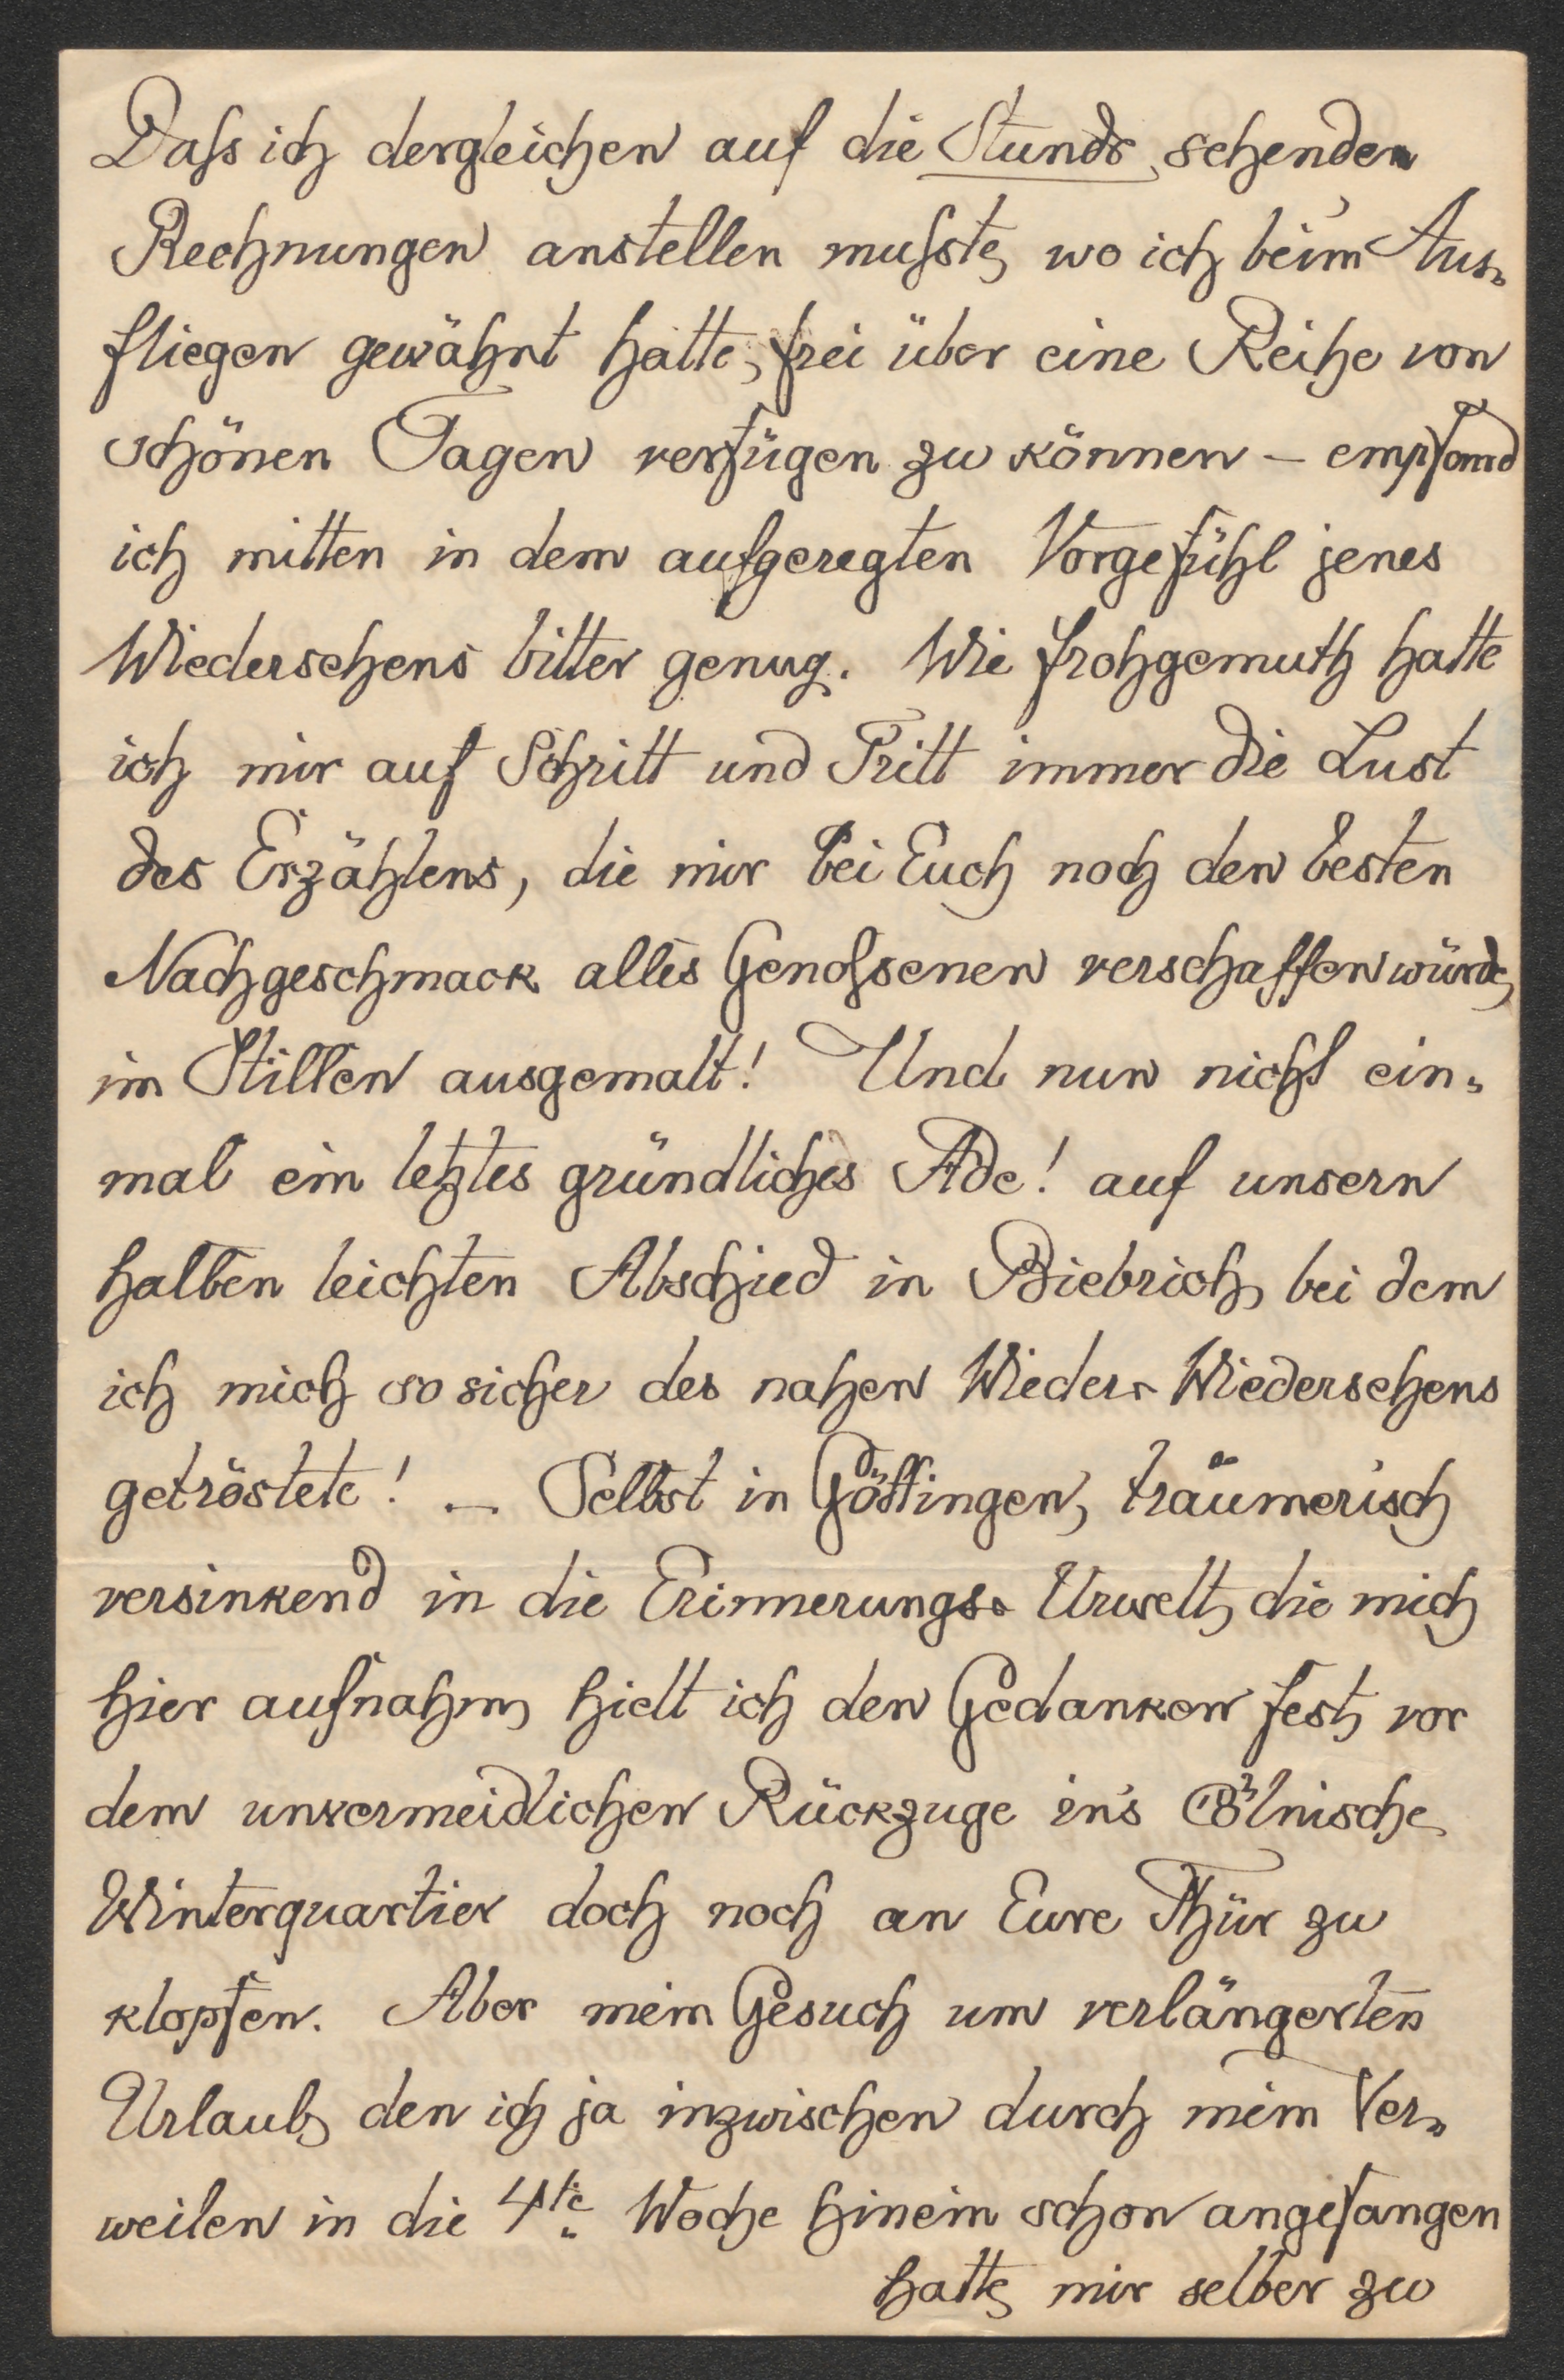 Daſs ich dergleichen auf die Stunde sehenden
Rechnungen anstellen muſste, wo ich beim Aus-
fliegen gewähnt hatte, frei über eine Reihe von
schönen Tagen verfügen zu können — empfand
ich mitten in dem aufgeregten Vorgefühl jenes
Wiedersehens bitter genug. Wie frohgemuth hatte
ich mir auf Schritt und Tritt immer die Lust
des Erzählens, die mir bei Euch noch den besten
Nachgeschmack alles Genoſsenen verschaffen würde,
im Stillen ausgemalt! Und nun nicht ein-
mal ein letztes gründliches Ade! auf unsern
halben leichten Abschied in Biebrich, bei dem
ich mich so sicher des nahen Wieder-Wiedersehens
getröstete! — Selbst in Göttingen, träumerisch
versinkend in die Erinnerungs-Urwelt, die mich
hier aufnahm, hielt ich den Gedanken fest, vor
dem unvermeidlichen Rückzuge in's Cölnische
Winterquartier doch noch an Eure Thür zu
klopfen. Aber mein Gesuch um verlängerten
Urlaub, den ich ja inzwischen durch mein Ver-
weilen in die 4te Woche hinein schon angefangen
hatte, mir selber zu